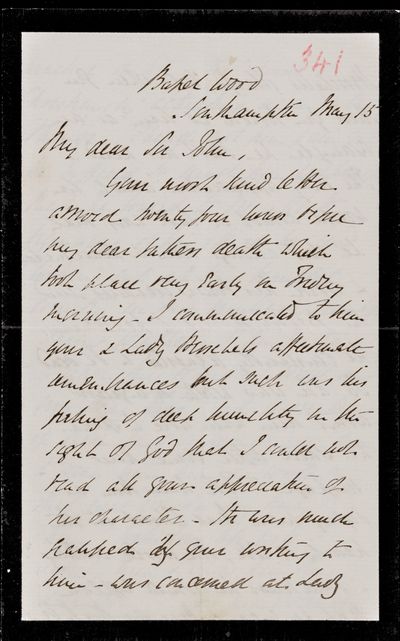 341
Basset Wood
Southampton May 15
My dear Sir John,
Your most kind letter
arrived twenty four hours before
my dear fathers death which
took place very early on Friday
morning - I communicated to him
your & Lady Herschels affectionate
remembrances but such was his
feeling of deep humility in the
sight of God that I could not
read all your appreciation of
his character - He was much
gratified by your writing to
him - was concerned at Lady